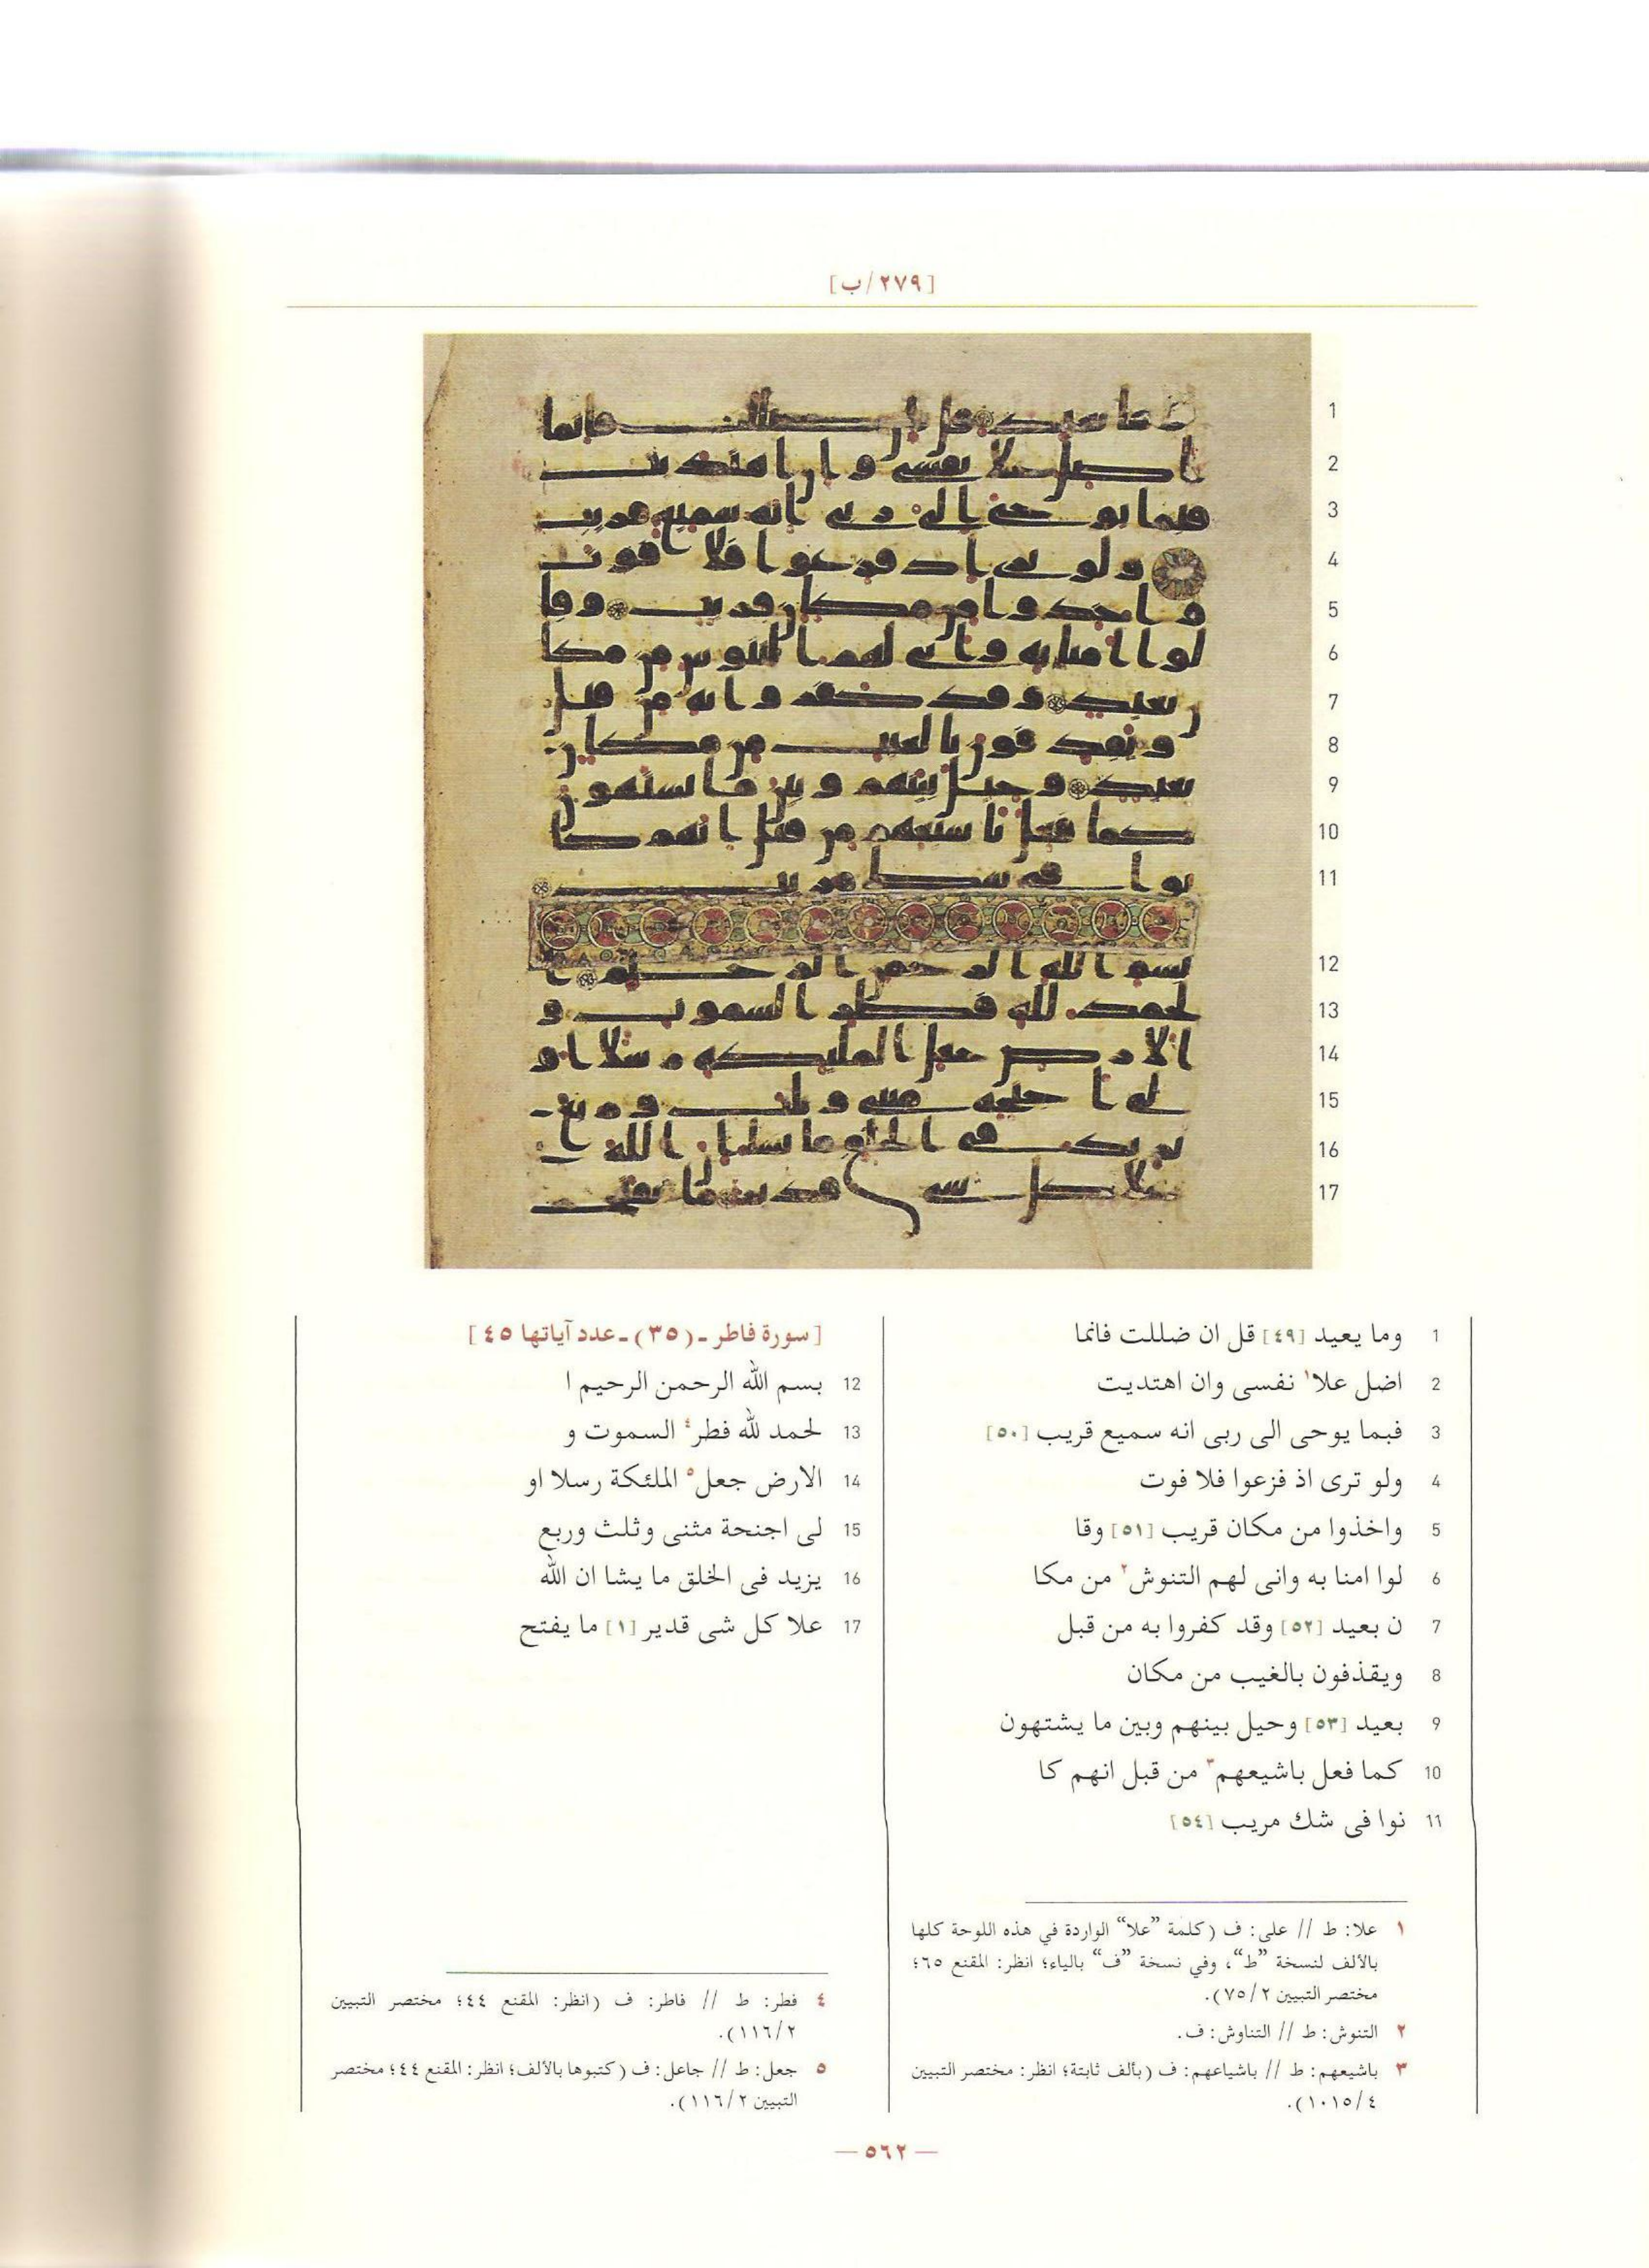 [٢٧٩/ب]
1 وما يعيد [٤٩] قل ان ضللت فانما
2 اضل علا١ نفسى وان اهتديت
3 فبما يوحى الى ربى انه سميع قريب [٥٠]
4 ولو ترى اذ فزعوا فلا فوت
5 واخذوا من مكان قريب [٥١] وقا
6 لوا امنا به وانى لهم التنوش٢ من مكا
7 ن بعيد [٥٢] وقد كفروا به من قبل
8 ويقذفون بالغيب من مكان
9 بعيد [٥٣] وحيل بينهم وبين ما يشتهون
10 كما فعل باشيعهم٣ من قبل انهم كا
11 نوا فى شك مريب [٥٤]
[سورة فاطر ـ (٣٥) ـ عدد آياتها ٤٥]
12 بسم الله الرحمن الرحيم ا
13 لحمد لله فطر٤ السموت و
14 الارض جعل٥ الملئكة رسلا او
15 لى اجنحة مثنى وثلث وربع
16 يزيد فى الخلق ما يشا ان الله
17 علا كل شى قدير [١] ما يفتح
١ علا: ط // على: ف (كلمة ”علا“ الواردة في هذه اللوحة كلها
بالألف لنسخة ”ط“، وفي نسخة ”ف“ بالياء؛ انظر: المقنع ٦٥؛
مختصر التبيين ٧٥/٢).
٢ التنوش: ط // التناوش: ف.
٣ باشيعهم: ط // باشياعهم: ف (بألف ثابتة؛ انظر: مختصر التبيين
١٠١٥/٤).
٤ فطر: ط // فاطر: ف (انظر: المقنع ٤٤؛ مختصر التبيين
١١٦/٢).
٥ جعل: ط // جاعل: ف (كتبوها بالألف؛ انظر: المقنع ٤٤؛ مختصر
التبيين ١١٦/٢).
— ٥٦٢ —